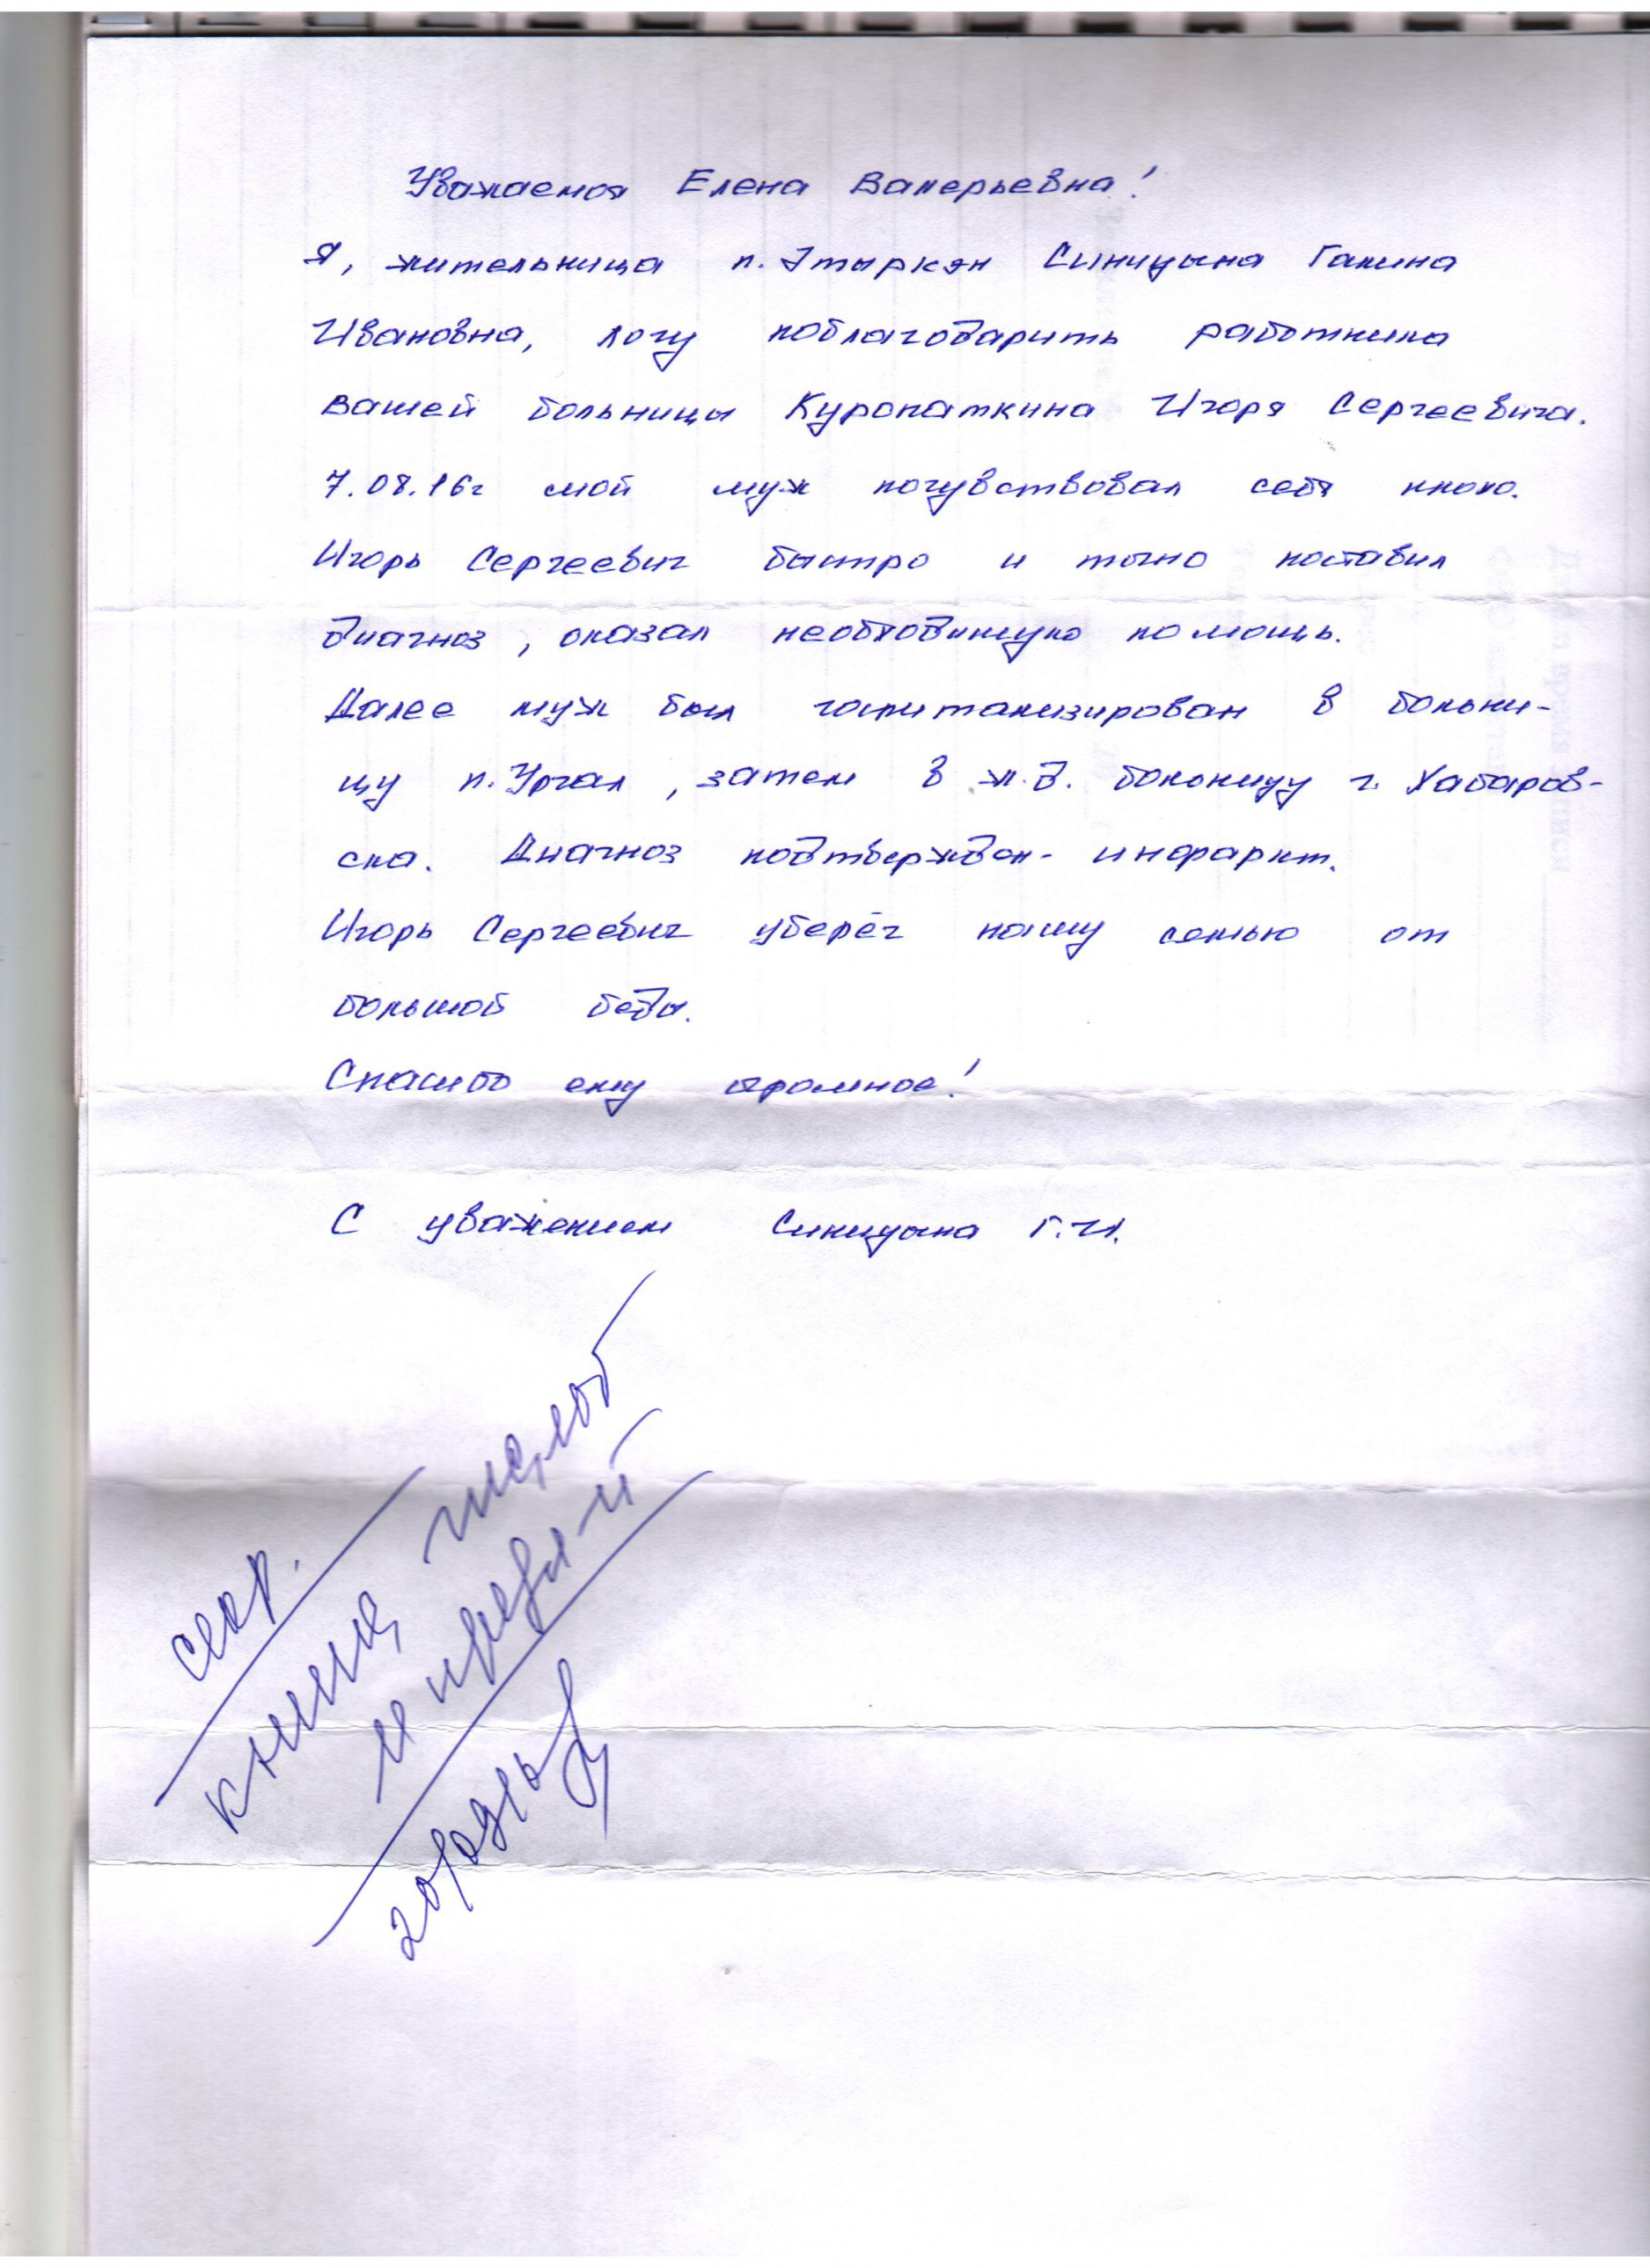 Уважаемая Елена Валерьевна!
Я, жительница п. Этыркэн Синицына Галина
Ивановна, хочу поблагодарить работника
вашей больницы Куропаткина Игоря Сергеевича.
7.08.16г мой муж почувствовал себя плохо.
Игорь Сергеевич быстро и точно поставил
диагноз, оказал необходимую помощь.
Далее муж был госпитализирован в больни-
цу п. Ургал, затем в ж.д. больницу г. Хабаров-
ска. Диагноз подтвержден - инфаркт.
Игорь Сергеевич уберёг нашу семью от
большой беды.
Спасибо ему огромное!
С уважением Синицына Г.И.
книга
и